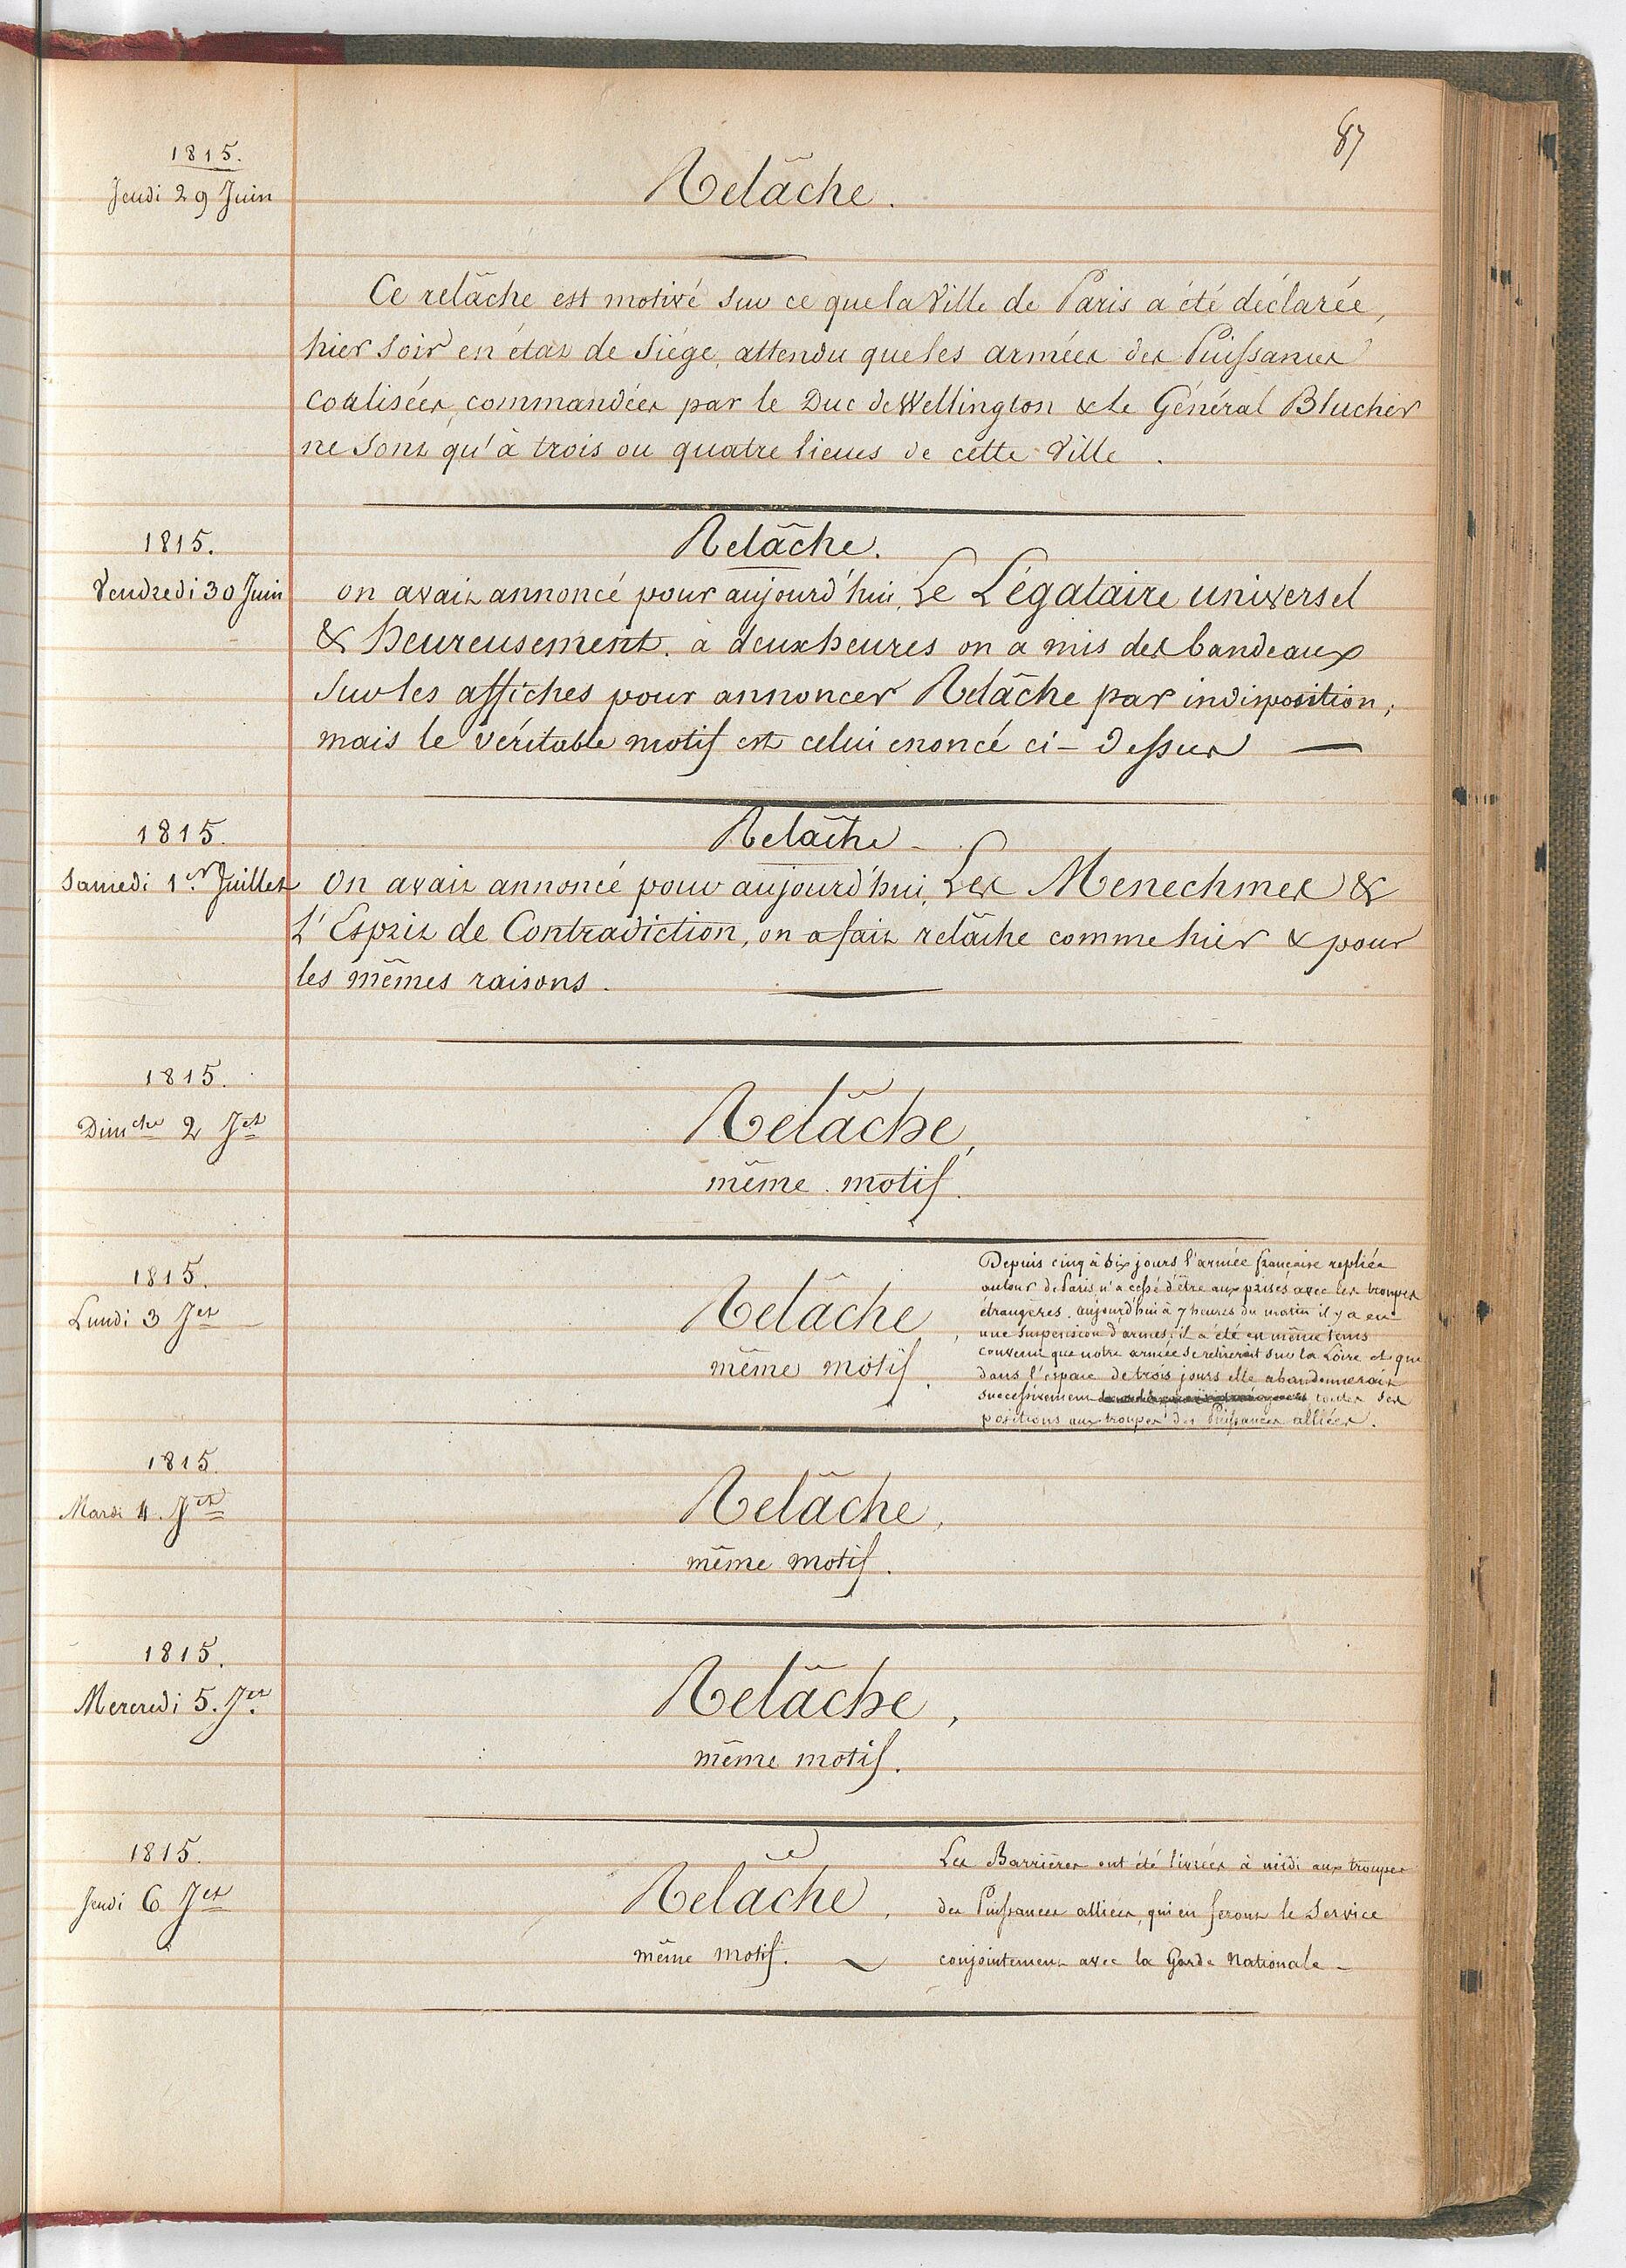 87
1815.
Jeudi 29 Juin
Relâche.
Ce relâche est motivé sur ce que la Ville de Paris a été déclarée,
hier soir en état de Siége, attendu que les armées des Puissances
coalisées, commandées par le Duc de Wellington & le Général Blucher
ne sont qu'à trois ou quatre lieues de cette Ville.
1815.
Vendredi 30 Juin
Relâche.
on avait annoncé pour aujourd'hui, Le Légataire universel
& heureusement. à deux heures on a mis des bandeaux
sur les affiches pour annoncer Relâche par indisposition;
mais le véritable motif est celui enoncé ci-dessus —
1815.
Samedi 1er. Juillet
Relâche
On avait annoncé pour aujourd'hui, Les Menechmes &
L'Esprit de Contradiction, on a fait relâche comme hier & pour
les mêmes raisons.
1815.
Dimche 2 Jet
Relâche,
même motif.
1815.
Lundi 3 Jet
Relâche,
même motif.
Depuis cinq à six jours l'armée française repliée
autour de Paris n'a cessé d'être aux prises avec les troupes
étrangères. aujourd'hui à 7 heures du matin il y a eu
une suspension d'armes; il a été en même tems
convenu que notre armée se retirerait sur la Loire et que
dans l'espace de trois jours elle abandonnerait
successivement toutes ses
positions aux troupes des Puissances alliées.
1815.
Mardi 4. Jet
Relâche,
même motif.
1815.
Mercredi 5. Jet
Relâche,
même motif.
1815.
Jeudi 6 Jet
Relâche,
même motif.
Les Barrières ont été livrées à midi aux troupes
des Puissances alliées, qui en feront le Service
conjointement avec la Garde Nationale —